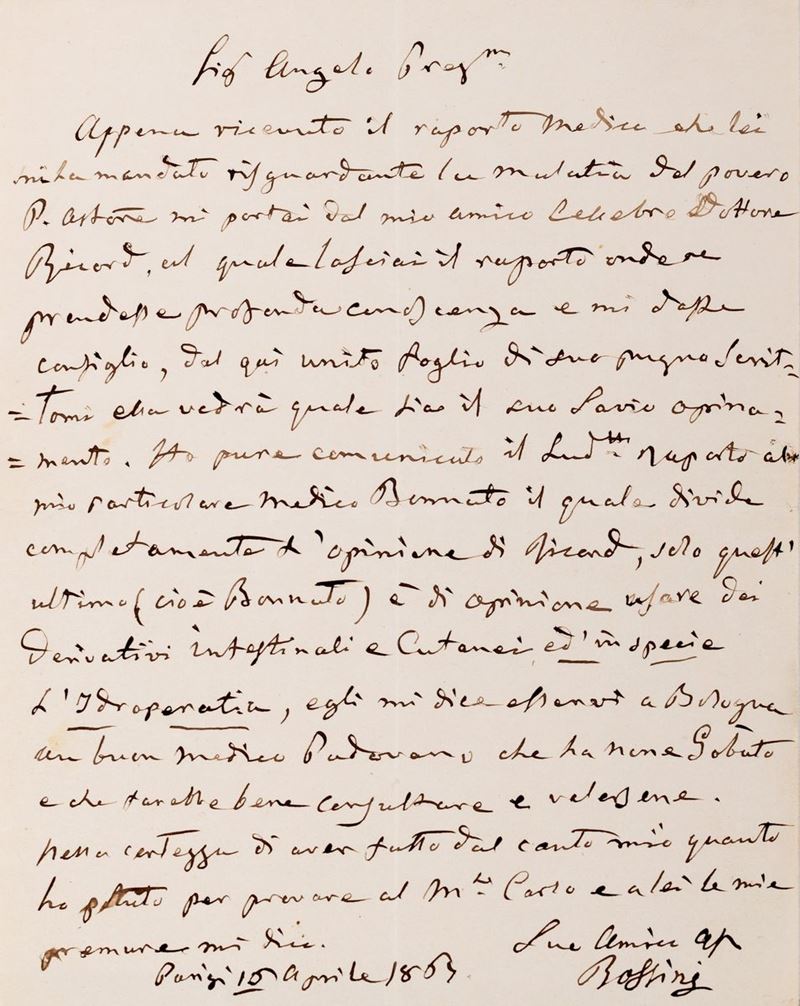 Sig Angelo Preg.mo
Appena ricevuto il raporto Medico che lei
mi ha mandato risguardante la malatia del povero
P. Astorre mi portai dal mio amico Cellebre Dottore
Ricord, al quale lasciai il raporto onde ne
prendesse profonda conoscenza e mi dasse
consiglio, dal qui unito foglio di suo pugno Scrit=
=tomi ella vedrà quale sia il suo Savio opina=
=mento. Ho pure comunicato il Sud.tto raporto al
mio particolare Medico Bonnato il quale divide
completamente L'opinione di Ricord, solo quest'
ultimo (cioè Bonnato) è di opinione usare dei
Derivativi intestinali e Cutanei ed' in specie
L'Idroperatia, egli mi dice esservi a Bologna
un buon medico Padovano che ha nome Gobato
e che sarebbe bene consultare e valersene.
Nella certezza di aver fatto dal canto mio quanto
ho potuto per provare al M. Carlo e a lei le mie
premure mi dico.
Suo Amico
Parigi 16 Aprile 1863 Rossini